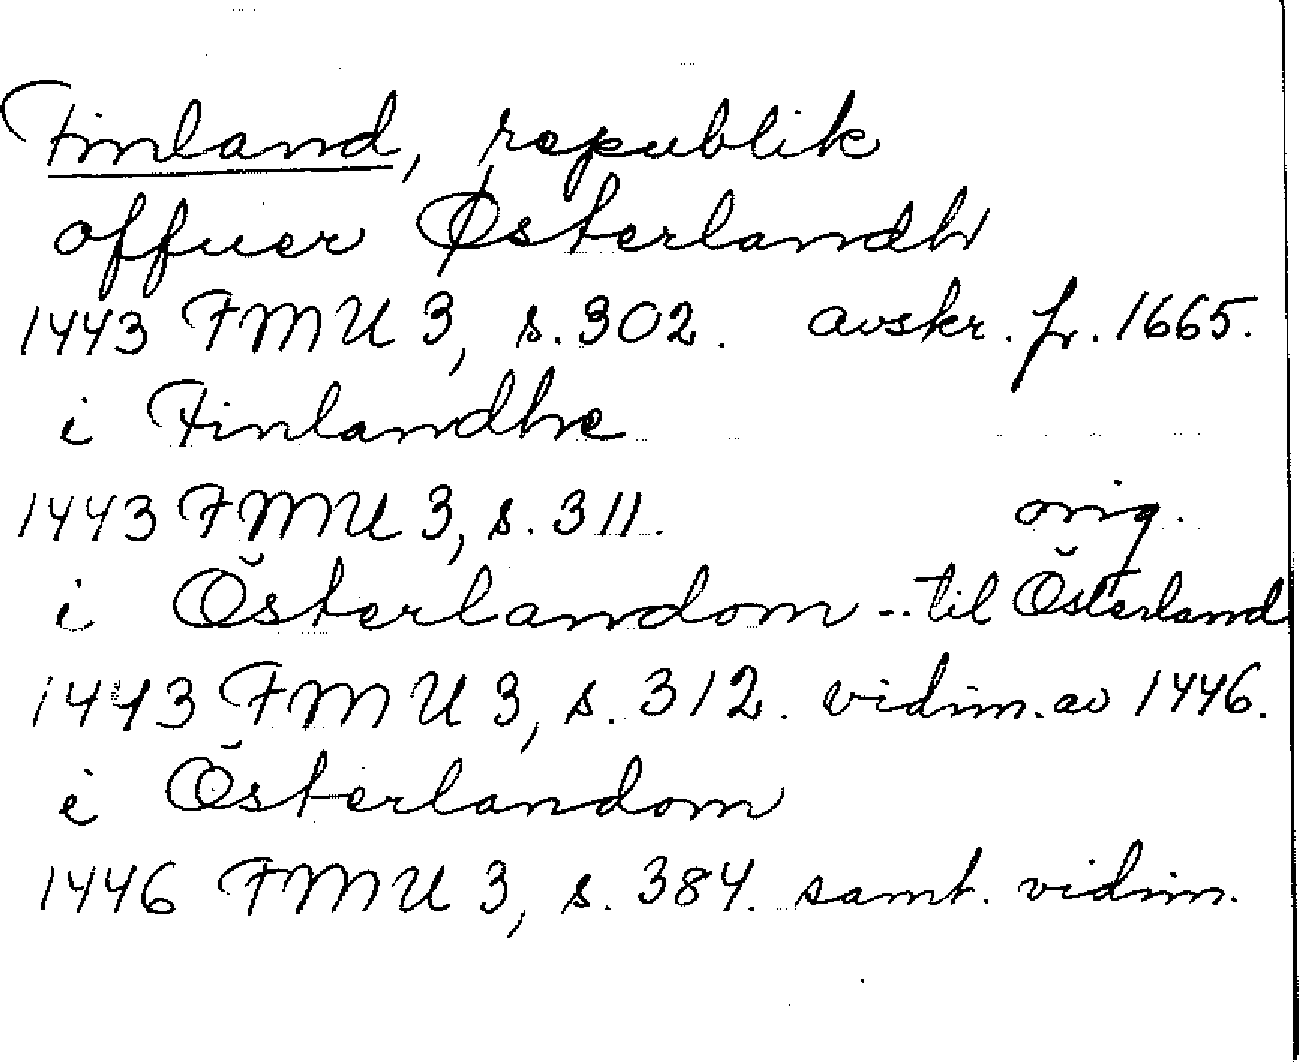 Finland, republik
offuer Østerlandh
1443 FMU 3, s. 302. avskr. fr. 1665.
i Finlandhe
1443 FMU 3, s. 311. orig.
i Österlandom -- til Österland
1443 FMU 3, s. 312. vidim. av 1446.
i Österlandom
1446 FMU 3, s. 384. samt. vidim.